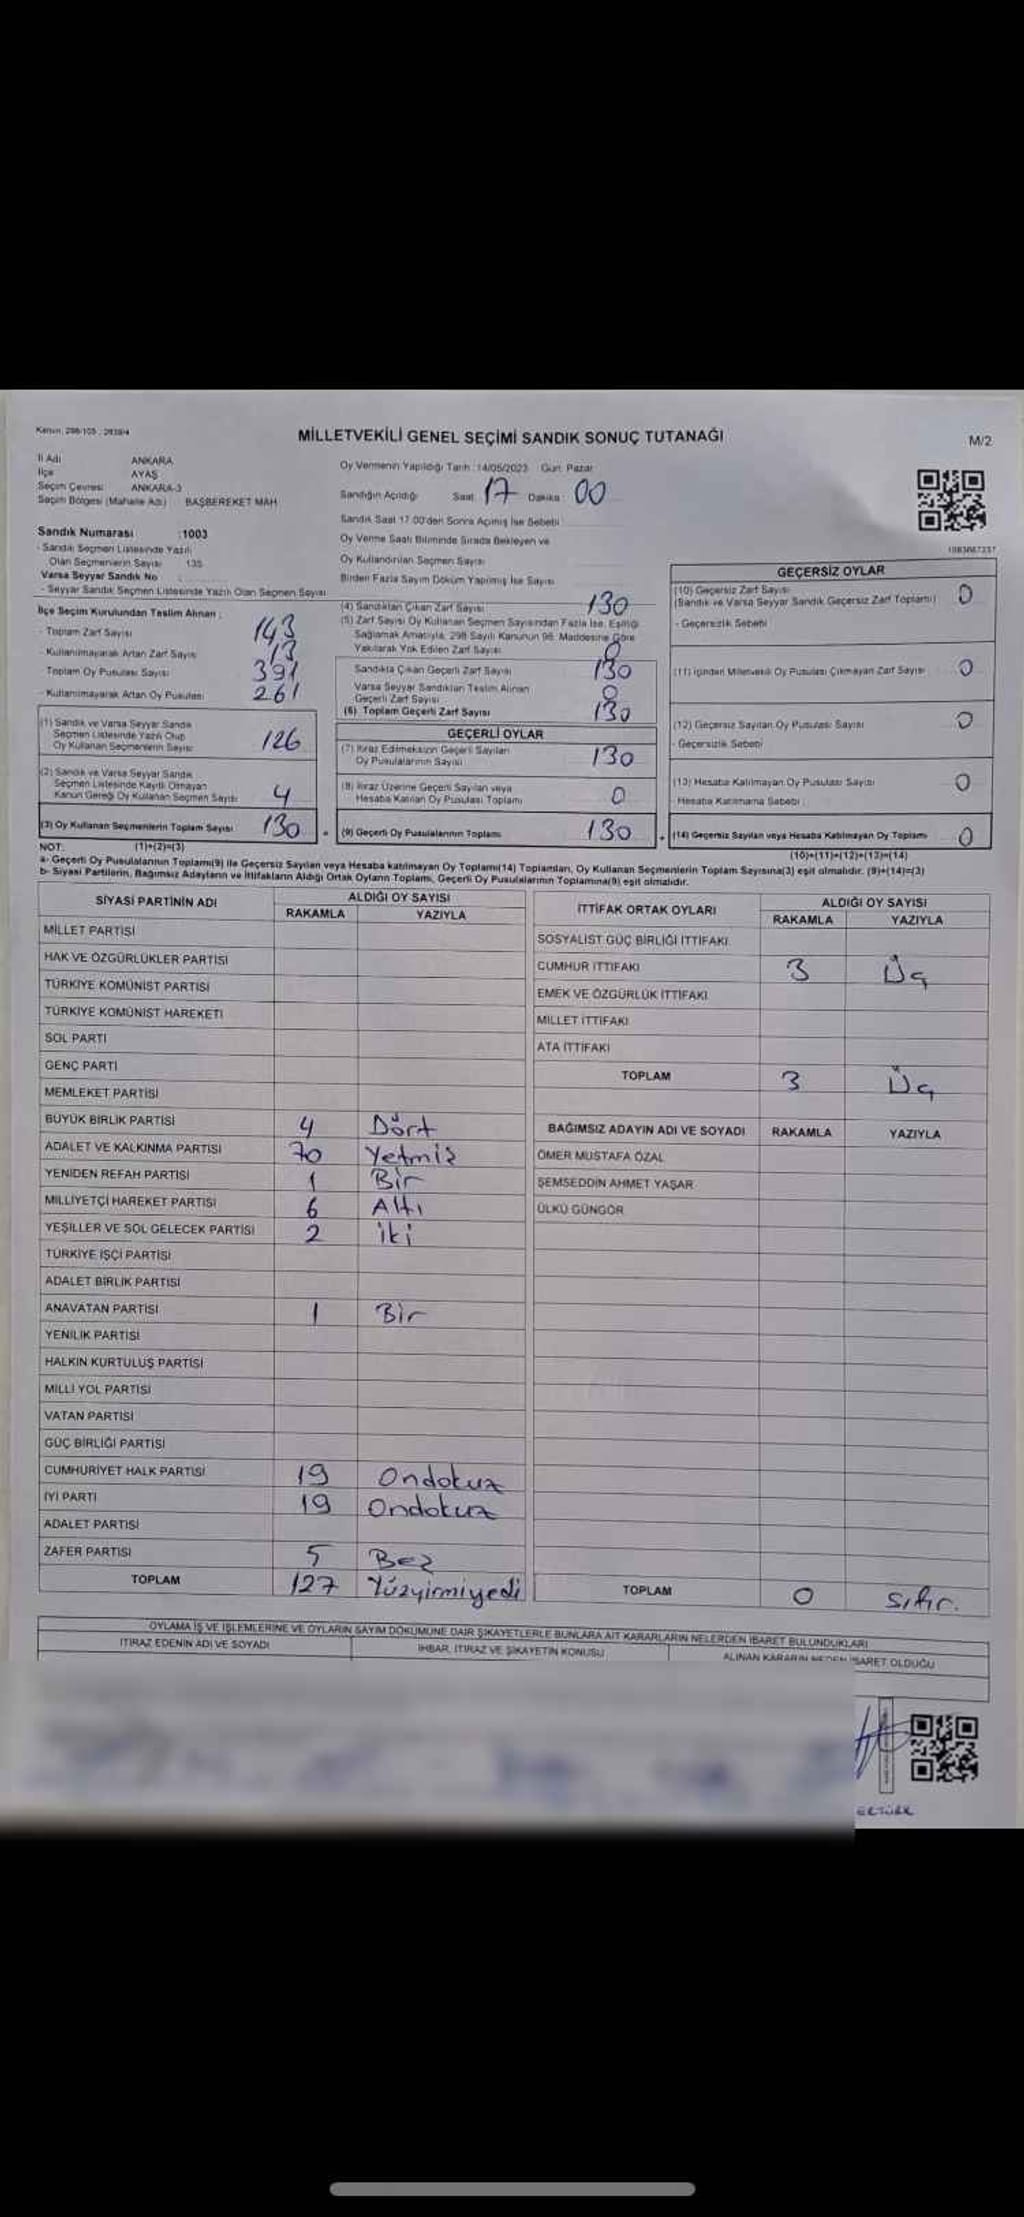 Kanun: 298/105 ; 2839/4
MİLLETVEKİLİ GENEL SEÇİMİ SANDIK SONUÇ TUTANAĞI
M/2
İl Adı ANKARA
İlçe AYAŞ
Seçim Çevresi ANKARA-3
Seçim Bölgesi (Mahalle Adı) BAŞBEREKET MAH
Oy Vermenin Yapıldığı Tarih : 14/05/2023 Gün: Pazar
Sandığın Açıldığı Saat 17 Dakika 00
Sandık Saat 17.00'den Sonra Açılmış İse Sebebi
Oy Verme Saati Bitiminde Sırada Bekleyen ve
Oy Kullandırılan Seçmen Sayısı
Birden Fazla Sayım Döküm Yapılmış İse Sayısı
Sandık Numarası :1003
- Sandık Seçmen Listesinde Yazılı
Olan Seçmenlerin Sayısı 135
Varsa Seyyar Sandık No
- Seyyar Sandık Seçmen Listesinde Yazılı Olan Seçmen Sayısı
İlçe Seçim Kurulundan Teslim Alınan ;
- Toplam Zarf Sayısı 143
- Kullanılmayarak Artan Zarf Sayısı 13
Toplam Oy Pusulası Sayısı 391
- Kullanılmayarak Artan Oy Pusulası 261
(1) Sandık ve Varsa Seyyar Sandık
Seçmen Listesinde Yazılı Olup
Oy Kullanan Seçmenlerin Sayısı 126
(2) Sandık ve Varsa Seyyar Sandık
Seçmen Listesinde Kayıtlı Olmayan
Kanun Gereği Oy Kullanan Seçmen Sayısı 4
(3) Oy Kullanan Seçmenlerin Toplam Sayısı 130
(4) Sandıktan Çıkan Zarf Sayısı 130
(5) Zarf Sayısı Oy Kullanan Seçmen Sayısından Fazla İse, Eşitliği
Sağlamak Amacıyla, 298 Sayılı Kanunun 98. Maddesine Göre
Yakılarak Yok Edilen Zarf Sayısı 0
Sandıkta Çıkan Geçerli Zarf Sayısı 130
Varsa Seyyar Sandıktan Teslim Alınan
Geçerli Zarf Sayısı 0
(6) Toplam Geçerli Zarf Sayısı 130
GEÇERLİ OYLAR
(7) İtiraz Edilmeksizin Geçerli Sayılan
Oy Pusulalarının Sayısı 130
(8) İtiraz Üzerine Geçerli Sayılan veya
Hesaba Katılan Oy Pusulası Toplamı 0
(9) Geçerli Oy Pusulalarının Toplamı 130
GEÇERSİZ OYLAR
(10) Geçersiz Zarf Sayısı 0
(Sandık ve Varsa Seyyar Sandık Geçersiz Zarf Toplamı)
- Geçersizlik Sebebi
(11) İçinden Milletvekili Oy Pusulası Çıkmayan Zarf Sayısı 0
(12) Geçersiz Sayılan Oy Pusulası Sayısı 0
- Geçersizlik Sebebi
(13) Hesaba Katılmayan Oy Pusulası Sayısı 0
- Hesaba Katılmama Sebebi
(14) Geçersiz Sayılan veya Hesaba Katılmayan Oy Toplamı 0
NOT: (1)+(2)=(3)
(10)+(11)+(12)+(13)=(14)
a- Geçerli Oy Pusulalarının Toplamı(9) ile Geçersiz Sayılan veya Hesaba katılmayan Oy Toplamı(14) Toplamları, Oy Kullanan Seçmenlerin Toplam Sayısına(3) eşit olmalıdır. (9)+(14)=(3)
b- Siyasi Partilerin, Bağımsız Adayların ve İttifakların Aldığı Ortak Oyların Toplamı, Geçerli Oy Pusulalarının Toplamına(9) eşit olmalıdır.
SİYASİ PARTİNİN ADI ALDIĞI OY SAYISI
RAKAMLA YAZIYLA
MİLLET PARTİSİ
HAK VE ÖZGÜRLÜKLER PARTİSİ
TÜRKİYE KOMÜNİST PARTİSİ
TÜRKİYE KOMÜNİST HAREKETİ
SOL PARTİ
GENÇ PARTİ
MEMLEKET PARTİSİ
BÜYÜK BİRLİK PARTİSİ 4 Dört
ADALET VE KALKINMA PARTİSİ 70 Yetmiş
YENİDEN REFAH PARTİSİ 1 Bir
MİLLİYETÇİ HAREKET PARTİSİ 6 Altı
YEŞİLLER VE SOL GELECEK PARTİSİ 2 iki
TÜRKİYE İŞÇİ PARTİSİ
ADALET BİRLİK PARTİSİ
ANAVATAN PARTİSİ 1 Bir
YENİLİK PARTİSİ
HALKIN KURTULUŞ PARTİSİ
MİLLİ YOL PARTİSİ
VATAN PARTİSİ
GÜÇ BİRLİĞİ PARTİSİ
CUMHURİYET HALK PARTİSİ 19 Ondokuz
İYİ PARTİ 19 Ondokuz
ADALET PARTİSİ
ZAFER PARTİSİ 5 Beş
TOPLAM 127 Yüzyirmiyedi
İTTİFAK ORTAK OYLARI ALDIĞI OY SAYISI
RAKAMLA YAZIYLA
SOSYALİST GÜÇ BİRLİĞİ İTTİFAKI
CUMHUR İTTİFAKI 3 Üç
EMEK VE ÖZGÜRLÜK İTTİFAKI
MİLLET İTTİFAKI
ATA İTTİFAKI
TOPLAM 3 Üç
BAĞIMSIZ ADAYIN ADI VE SOYADI RAKAMLA YAZIYLA
ÖMER MUSTAFA ÖZAL
ŞEMSEDDİN AHMET YAŞAR
ÜLKÜ GÜNGÖR
TOPLAM 0 sıfır.
OYLAMA İŞ VE İŞLEMLERİNE VE OYLARIN SAYIM DÖKÜMÜNE DAİR ŞİKAYETLERLE BUNLARA AİT KARARLARIN NELERDEN İBARET BULUNDUKLARI
İTİRAZ EDENİN ADI VE SOYADI İHBAR, İTİRAZ VE ŞİKAYETİN KONUSU ALINAN KARARIN NEDEN İBARET OLDUĞU
ERTÜRK